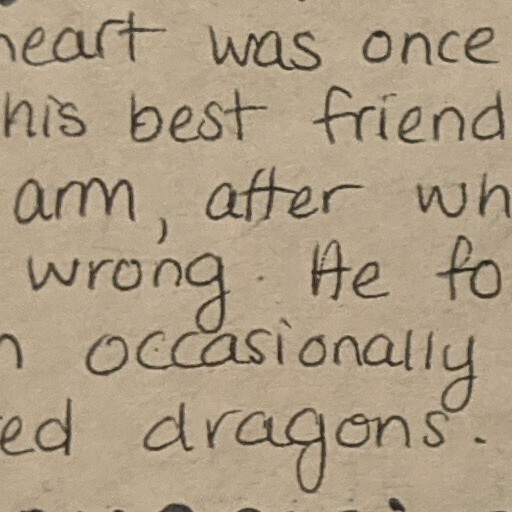 heart was once
his best friend
arm, after wh
wrong. He fo
n occasionally
ed dragons.